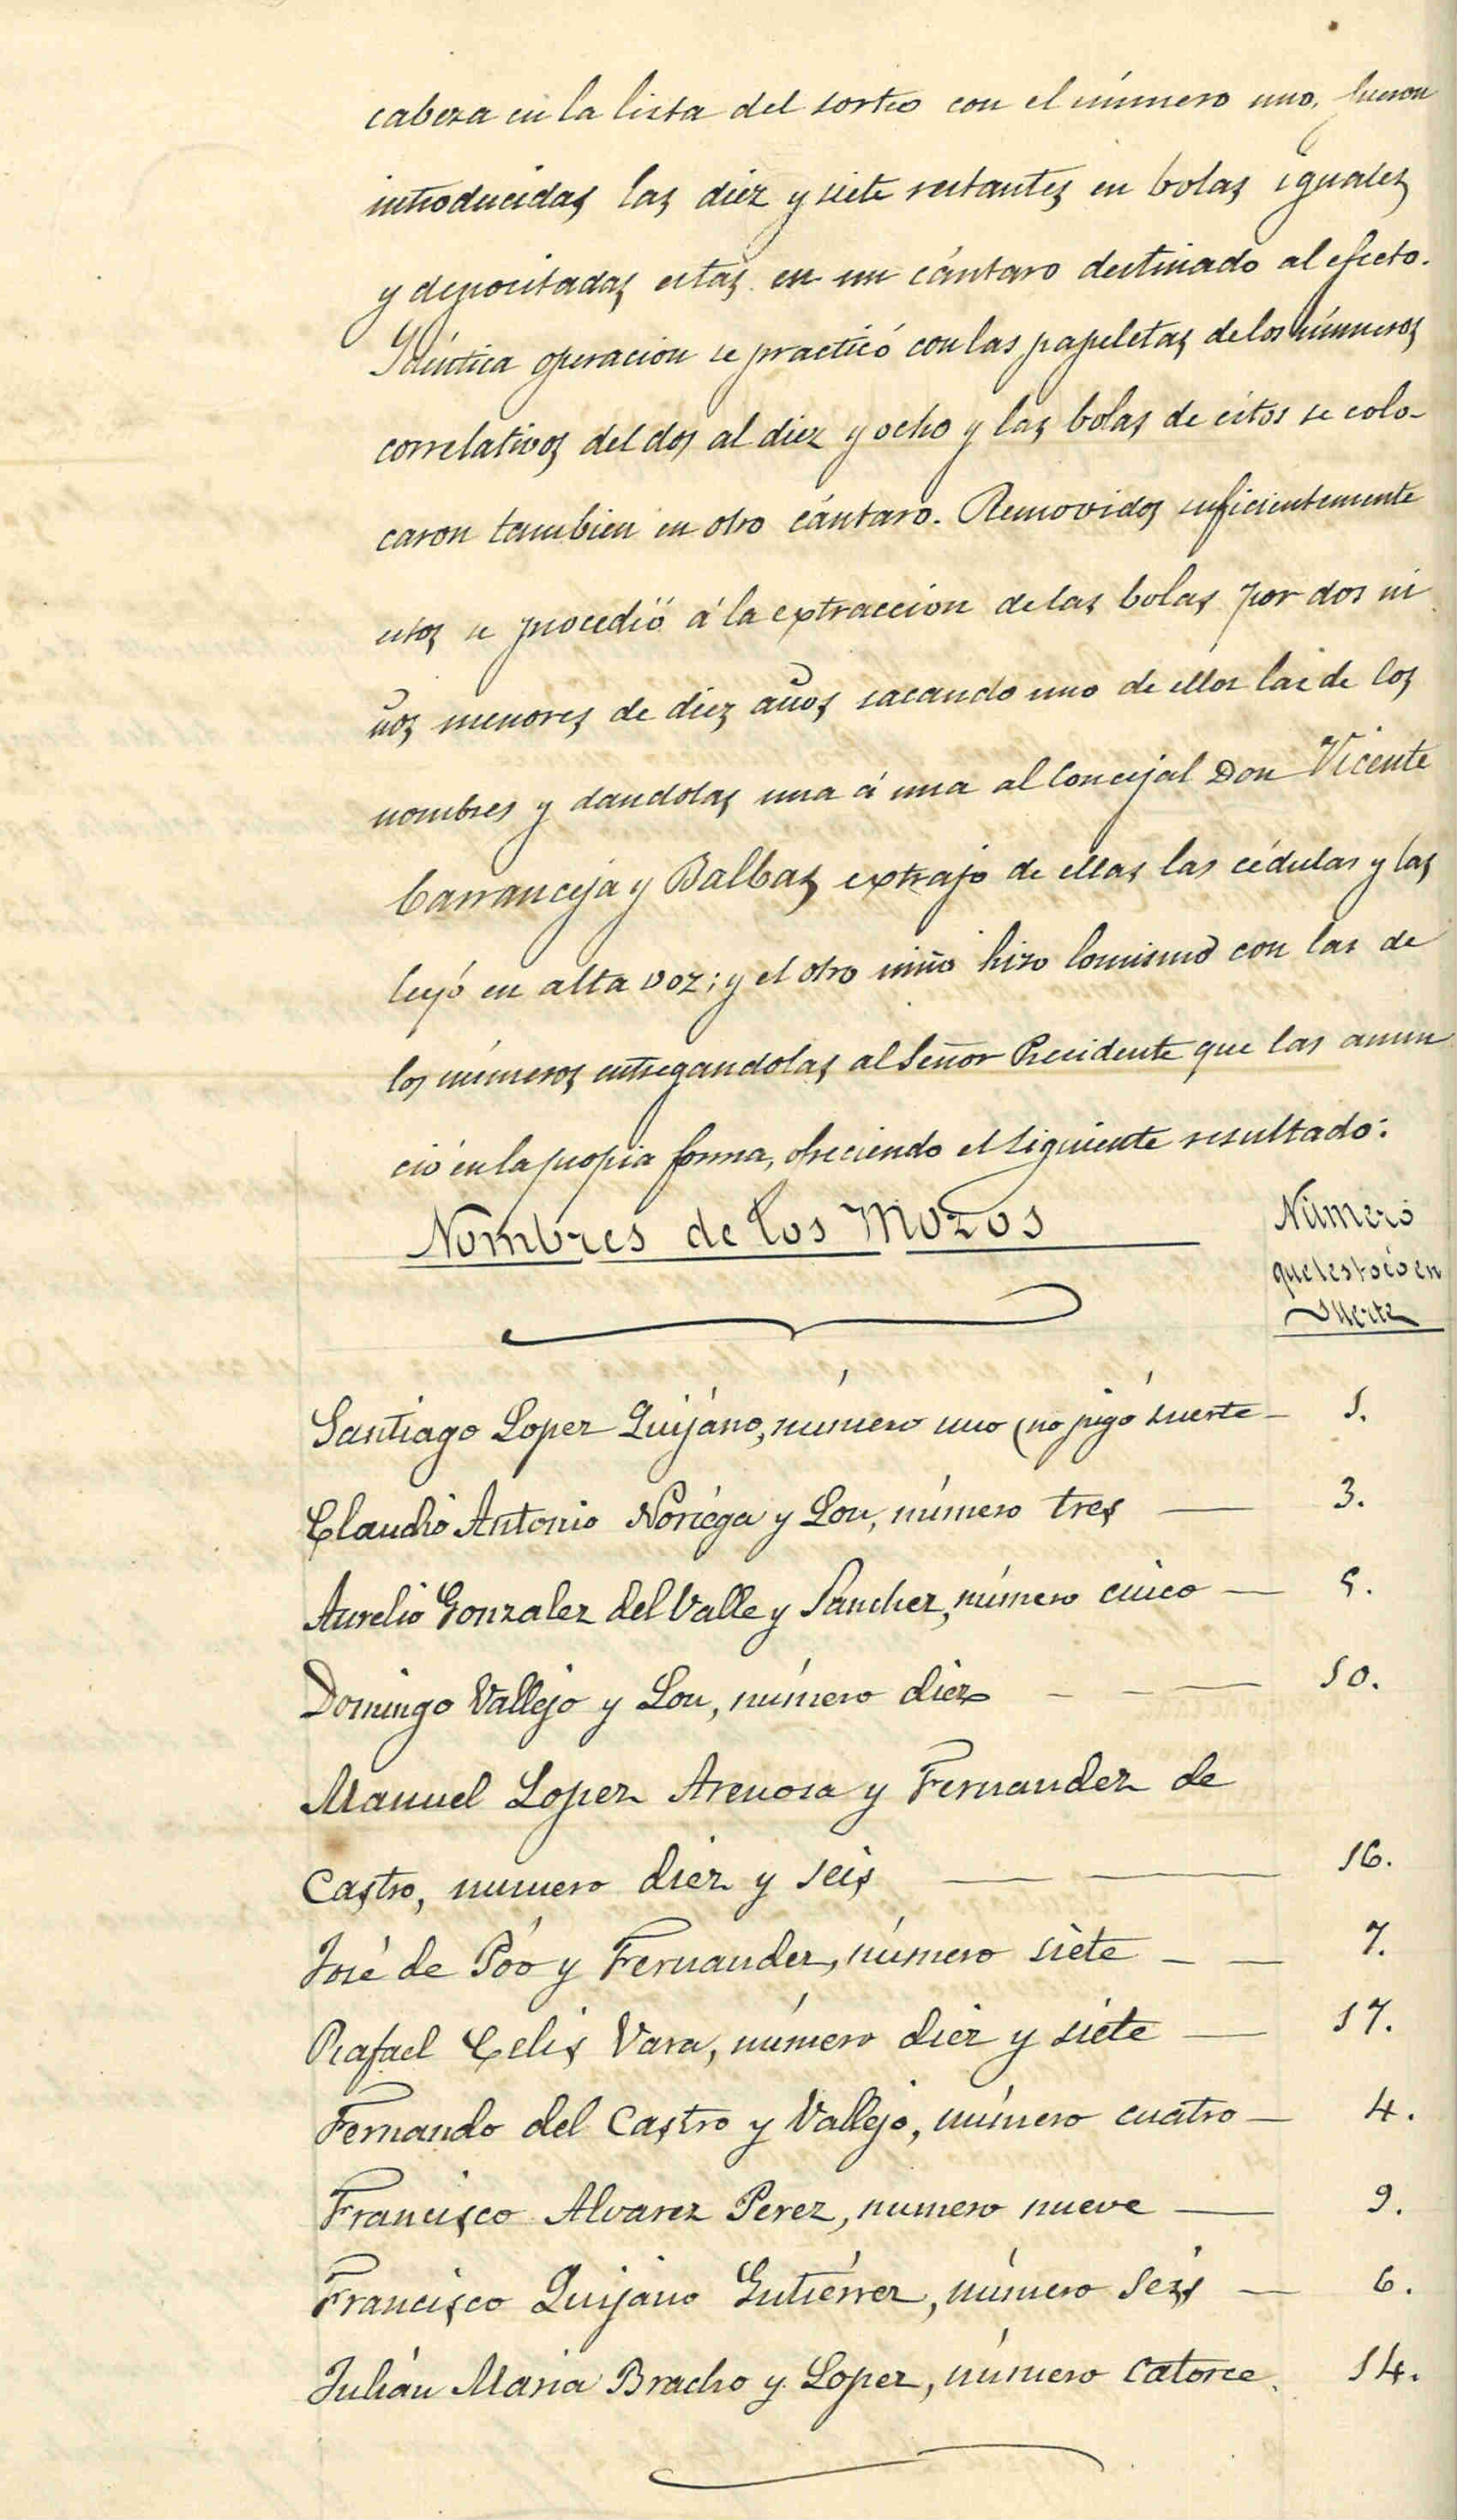 cabeza en la lista del sorteo con el número uno, fueron
introducidas las diez y siete restantes en bolas iguales
y depositadas estas en un cántaro destinado al efecto.
Idéntica operacion se practicó con las papeletas de los números
correlativos del dos al diez y ocho y las bolas de éstos se colo-
caron tambien en otro cántaro. Removidos suficientemente
estos se procedió á la extraccion de las bolas por dos ni
ños menores de diez años sacando uno de ellos las de los
nombres y dandolas una á una al Concejal Don Vicente
Carranceja y Balbas extrajo de ellas las cédulas y las
leyó en alta voz; y el otro niño hizo lo mismo con las de
los números entregandolas al Señor Presidente que las anun
ció en la propia forma, ofreciendo el siguiente resultado:
Nombres de los Mozos
Número
que les tocó en
Suerte
Santiago Lopez Quijáno, número uno (no jugó suerte — 1.
Claudio Antonio Noriéga y Lou, número tres — 3.
Aurelio Gonzalez del Valle y Sanchez, número cinco — 5.
Domingo Vallejo y Lou, número diez — — — 10.
Manuel Lopez Arenosa y Fernandez de
Castro, numero diez y seis — — 16.
José de Póo y Fernandez, número siete — — 7.
Rafael Celis Vara, número diez y siete — 17.
Fernando del Castro y Vallejo, número cuatro — 4.
Francisco Alvarez Perez, numero nueve — 9.
Francisco Quijano Gutiérrez, número seis — 6.
Julián Maria Bracho y Lopez, número catorce. 14.